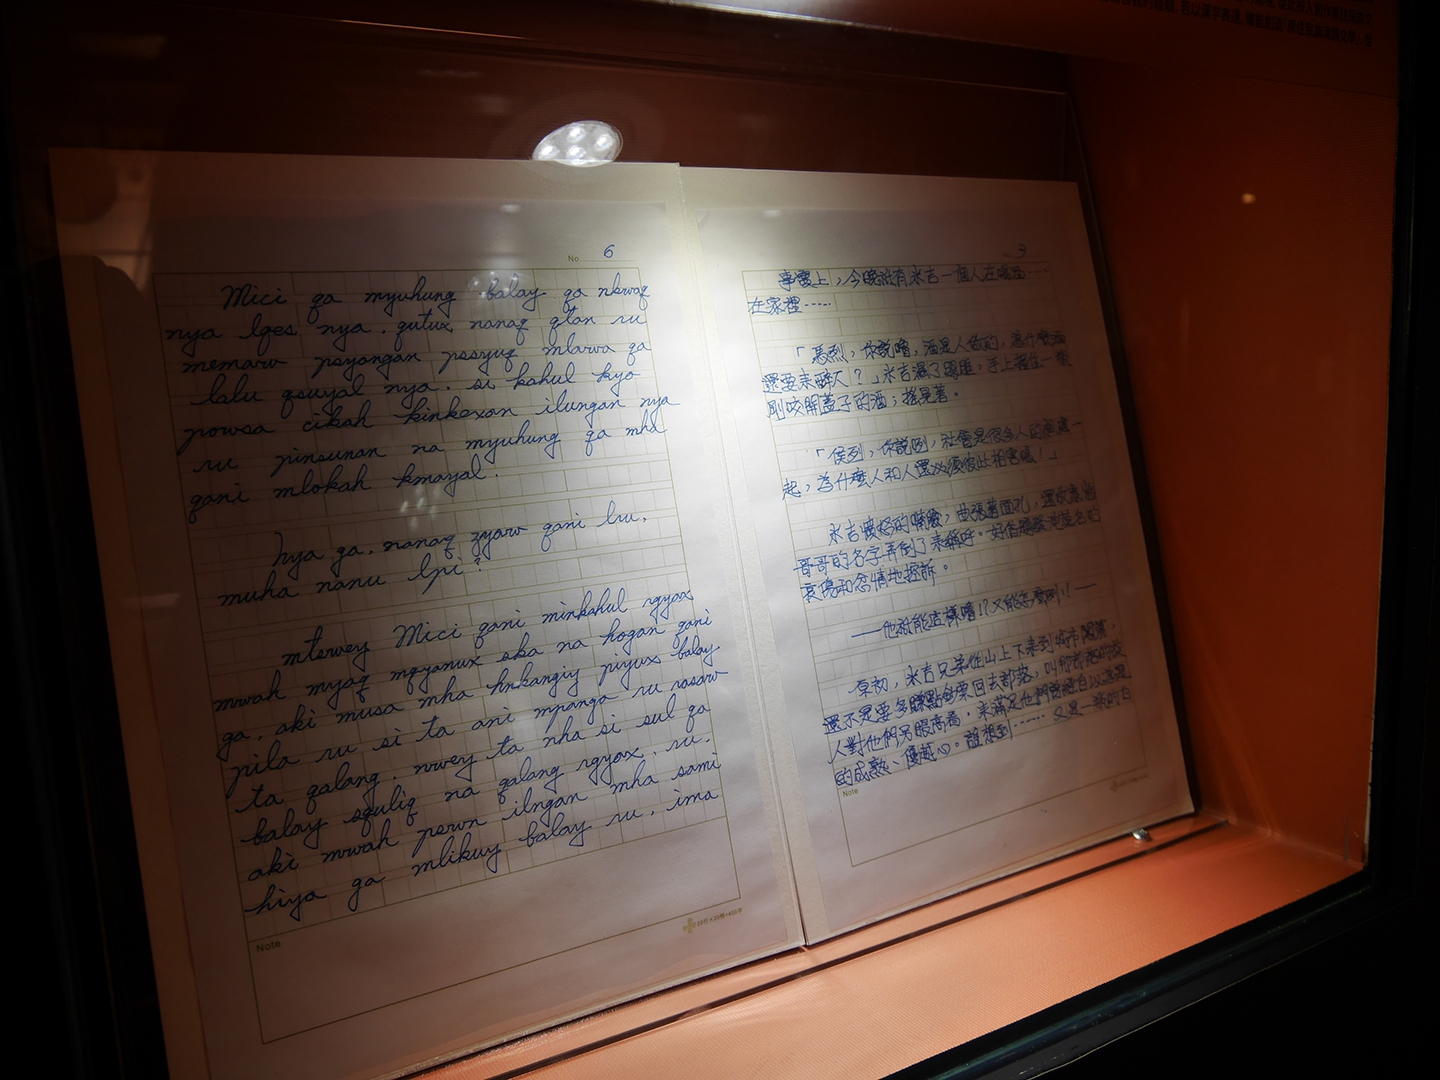 No. 6
Mici ga myuhung balay qa nkwaq
nya lqes nya. qutux nanaq qtan ru
memaw psyangan pssyuq mlawa qa
lalu qsuyal nya. si kahul kya
powsa cikah kinkexan ilungan nya
ru pinsunan na myuhung qa mha
qani mlokah kmayal.
hya ga. nanaq zyaw qani lru.
muha nanu lpi?
mtswey Mici qani minkahul rgyax
mwah myaq mqyanux ska na hogan qani
ga. aki musa mha hnkangiy piyux balay
pila ru si ta ani mpanga ru rasaw
ta qalang. nwey ta nha si sul qa
balay squliq na qalang rgyax. ru.
aki mwah pswn ilngan mha sami
hiya ga mlikuy balay ru. ima
Note
20行×20格=400字
事實上，今晚祇有米吉一個人在喝酒……
在家裡……
「馮烈，你說嚕，酒是人做的，為什麼酒
還要來醉人？」米吉濕了眼睛，手上握住一瓶
剛咬開蓋子的酒；搖晃著。
「侯列，你說咧，社會是很多人的
起，為什麼人和人還必須彼此相害喔！」
米吉憤怒的嘴臉，
哥哥的名字弄倒了來稱呼。
哀傷和忿情地控訴。
——他祇能這樣嚕！？又能怎麼咧！！——
原初，米吉兄弟從山上下來到城市闖蕩，
還不是要多賺點鈔票回去部落，叫
人對他們另眼高看，來滿足他們曾經自以為是
的成熟、優越心。誰想到……又是一
Note